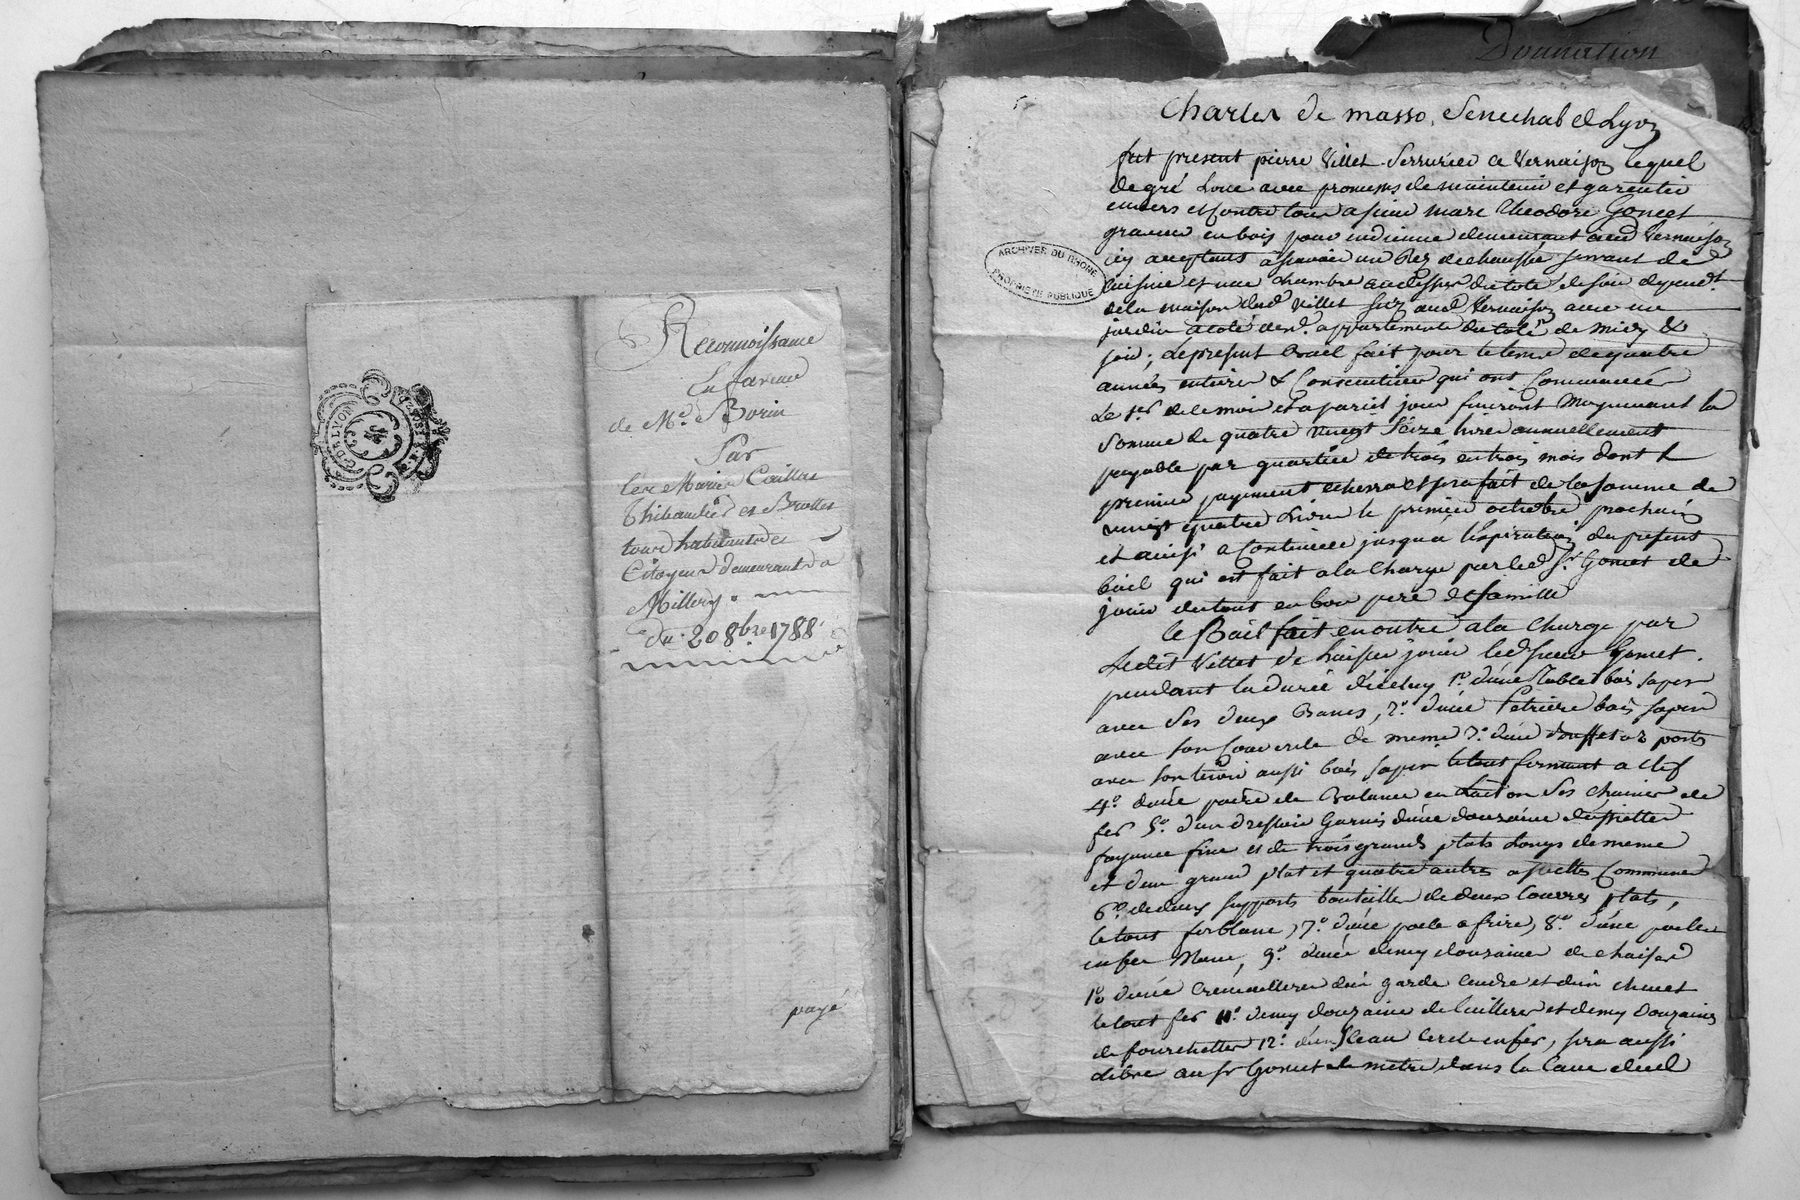 Reconnoissance
En faveur
de Mr. Borin
Par
les Maries Caillas
Thibaudier et Brottes
tous habitants et
Citoyens demeurants a
Millery.
du 20 8bre 1788
payé
G. DE LYON
Donnation
Charles de masso, Senechal de Lyon
fut present pierre Villet Serrurier a Vernaison lequel
de gré Loue avec promesses de maintenir et garentir
envers et contre tous a sieur marc theodore Goncet
graveur en bois pour indienne demeurant aud Vernaison
icy acceptant asavoir un Rez de chaussée servant de
cuisine et une chambre au dessus du coté de soir dependt.
de la maison dud Villet Size aud Vernaison avec un
jardin a coté desd. appartements du coté de midy &
soir; le present Bail fait pour le terme de quatre
années entieres & Consecutives qui ont Commencées
Le 1er de ce mois et a pareil jour finiront Moyennant la
somme de quatre vingt Seize livres annuellement
payable par quartier de trois en trois mois dont le
premier payement echerra et sera fait de la somme de
vingt quatre Livres le premier octobre prochain
et ainsi a Continuer jusqu'a l'expiration du present
bail qui est fait a la Charge par led Sr. Goncet de
jouir du tout en bon pere de famille
le Bail fait en outre a la Charge par
Ledit Villet de laisser jouir led sieur Goncet
pendant la durée d'iceluy 1o. d'une Table bois sapin
avec Ses deux Bancs, 2o. d'une Petriere bois sapin
avec son Couvercle de meme 3o. d'un Buffet a 2 ports
avec son tiroir aussi bois sapin le tout fermant a clef
4o. d'une paire de Balance en Laiton Ses chaines de
fer 5o. d'un dressoir Garnis d'une douzaine d'assiettes
fayance fine et de trois grands plats Longs de meme
et d'un grand plat et quatre autres assiettes Communes
6o. de deux supports bouteilles de deux Couvres plats,
le tout ferblanc, 7o. d'une poele a frire, 8o. d'une poele
en fer Mane, 9o. d'une demy douzaine de chaises
10 d'une Cremaillere d'un garde cendre et d'un chenet
le tout fer 11o. demy douzaine de Cuilleres et demy Douzaine
de fourchettes 12o. d'un Seau cercle en fer, sera aussi
Libre au Sr Goncet de mettre dans la Cave dud
ARCHIVES DU RHONE
PROPRIETE PUBLIQUE